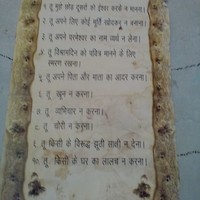 १ तू मुझे छोड़ दूसरों को ईश्वर करके न मानना।
२. तू अपने लिए कोई मूर्ति खोदकर न बनाना।
३. तू अपने परमेश्वर का नाम व्यर्थ न लेना।
४. तू विश्रामदिन को पवित्र मानने के लिए
स्मरण रखना।
५. तू अपने पिता और माता का आदर करना।
६. तू खून न करना।
७. तू व्यभिचार न करना।
८. तू चोरी न करना।
९. तू किसी के विरूद्ध झूठी साक्षी न देना।
१०. तू किसी के घर का लालच न करना।